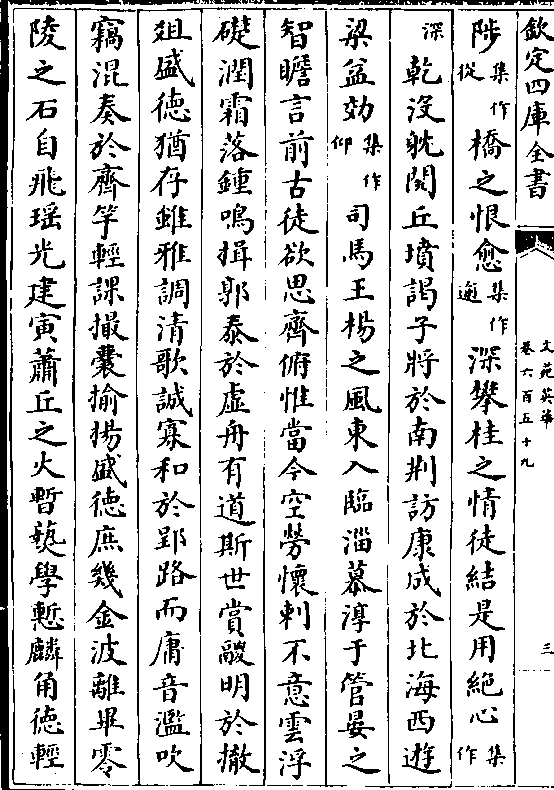 欽定四庫全書
文苑英華
卷六百五十九
三
陟集作從橋之恨愈集作逾深攀桂之情徒結是用絕心集作
深乾没躭閱丘墳謁子將於南荆訪康成於北海西遊
梁益効集作仰司馬王楊之風東入臨淄慕淳于管晏之
智瞻言前古徒欲思齊俯惟當今空勞懷刺不意雲浮
礎潤霜落鍾鳴揖郭泰於虛舟有道斯世賞鬷明於撤
俎盛德猶存雖雅調清歌誠寡和於郢路而庸音濫吹
竊混奏於齊竽輕課撮囊揄揚盛德庶幾金波離畢零
陵之石自飛瑶光建寅蕭丘之火暫爇學慙麟角德輕